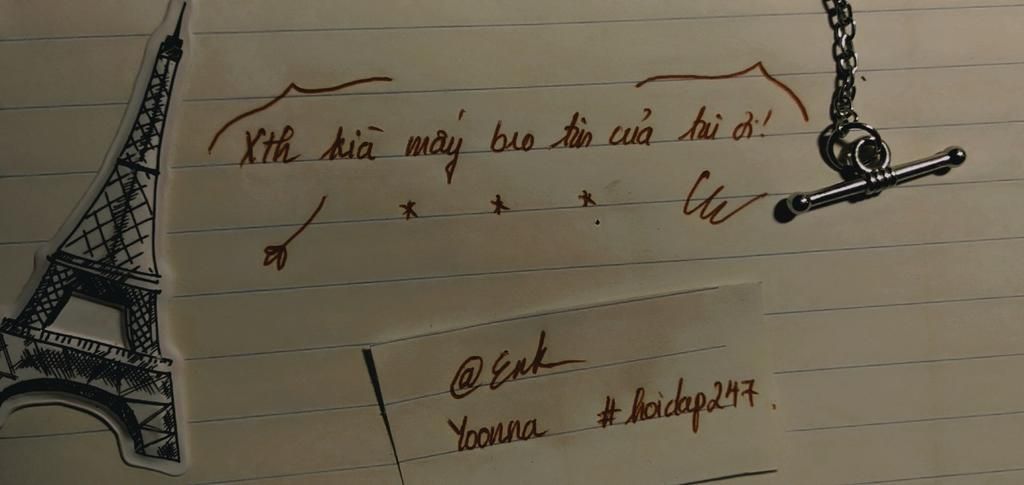 Xth kià mấy bro tin của tui ơi!
* * *
@Enk
Yoonna #hoidap247.